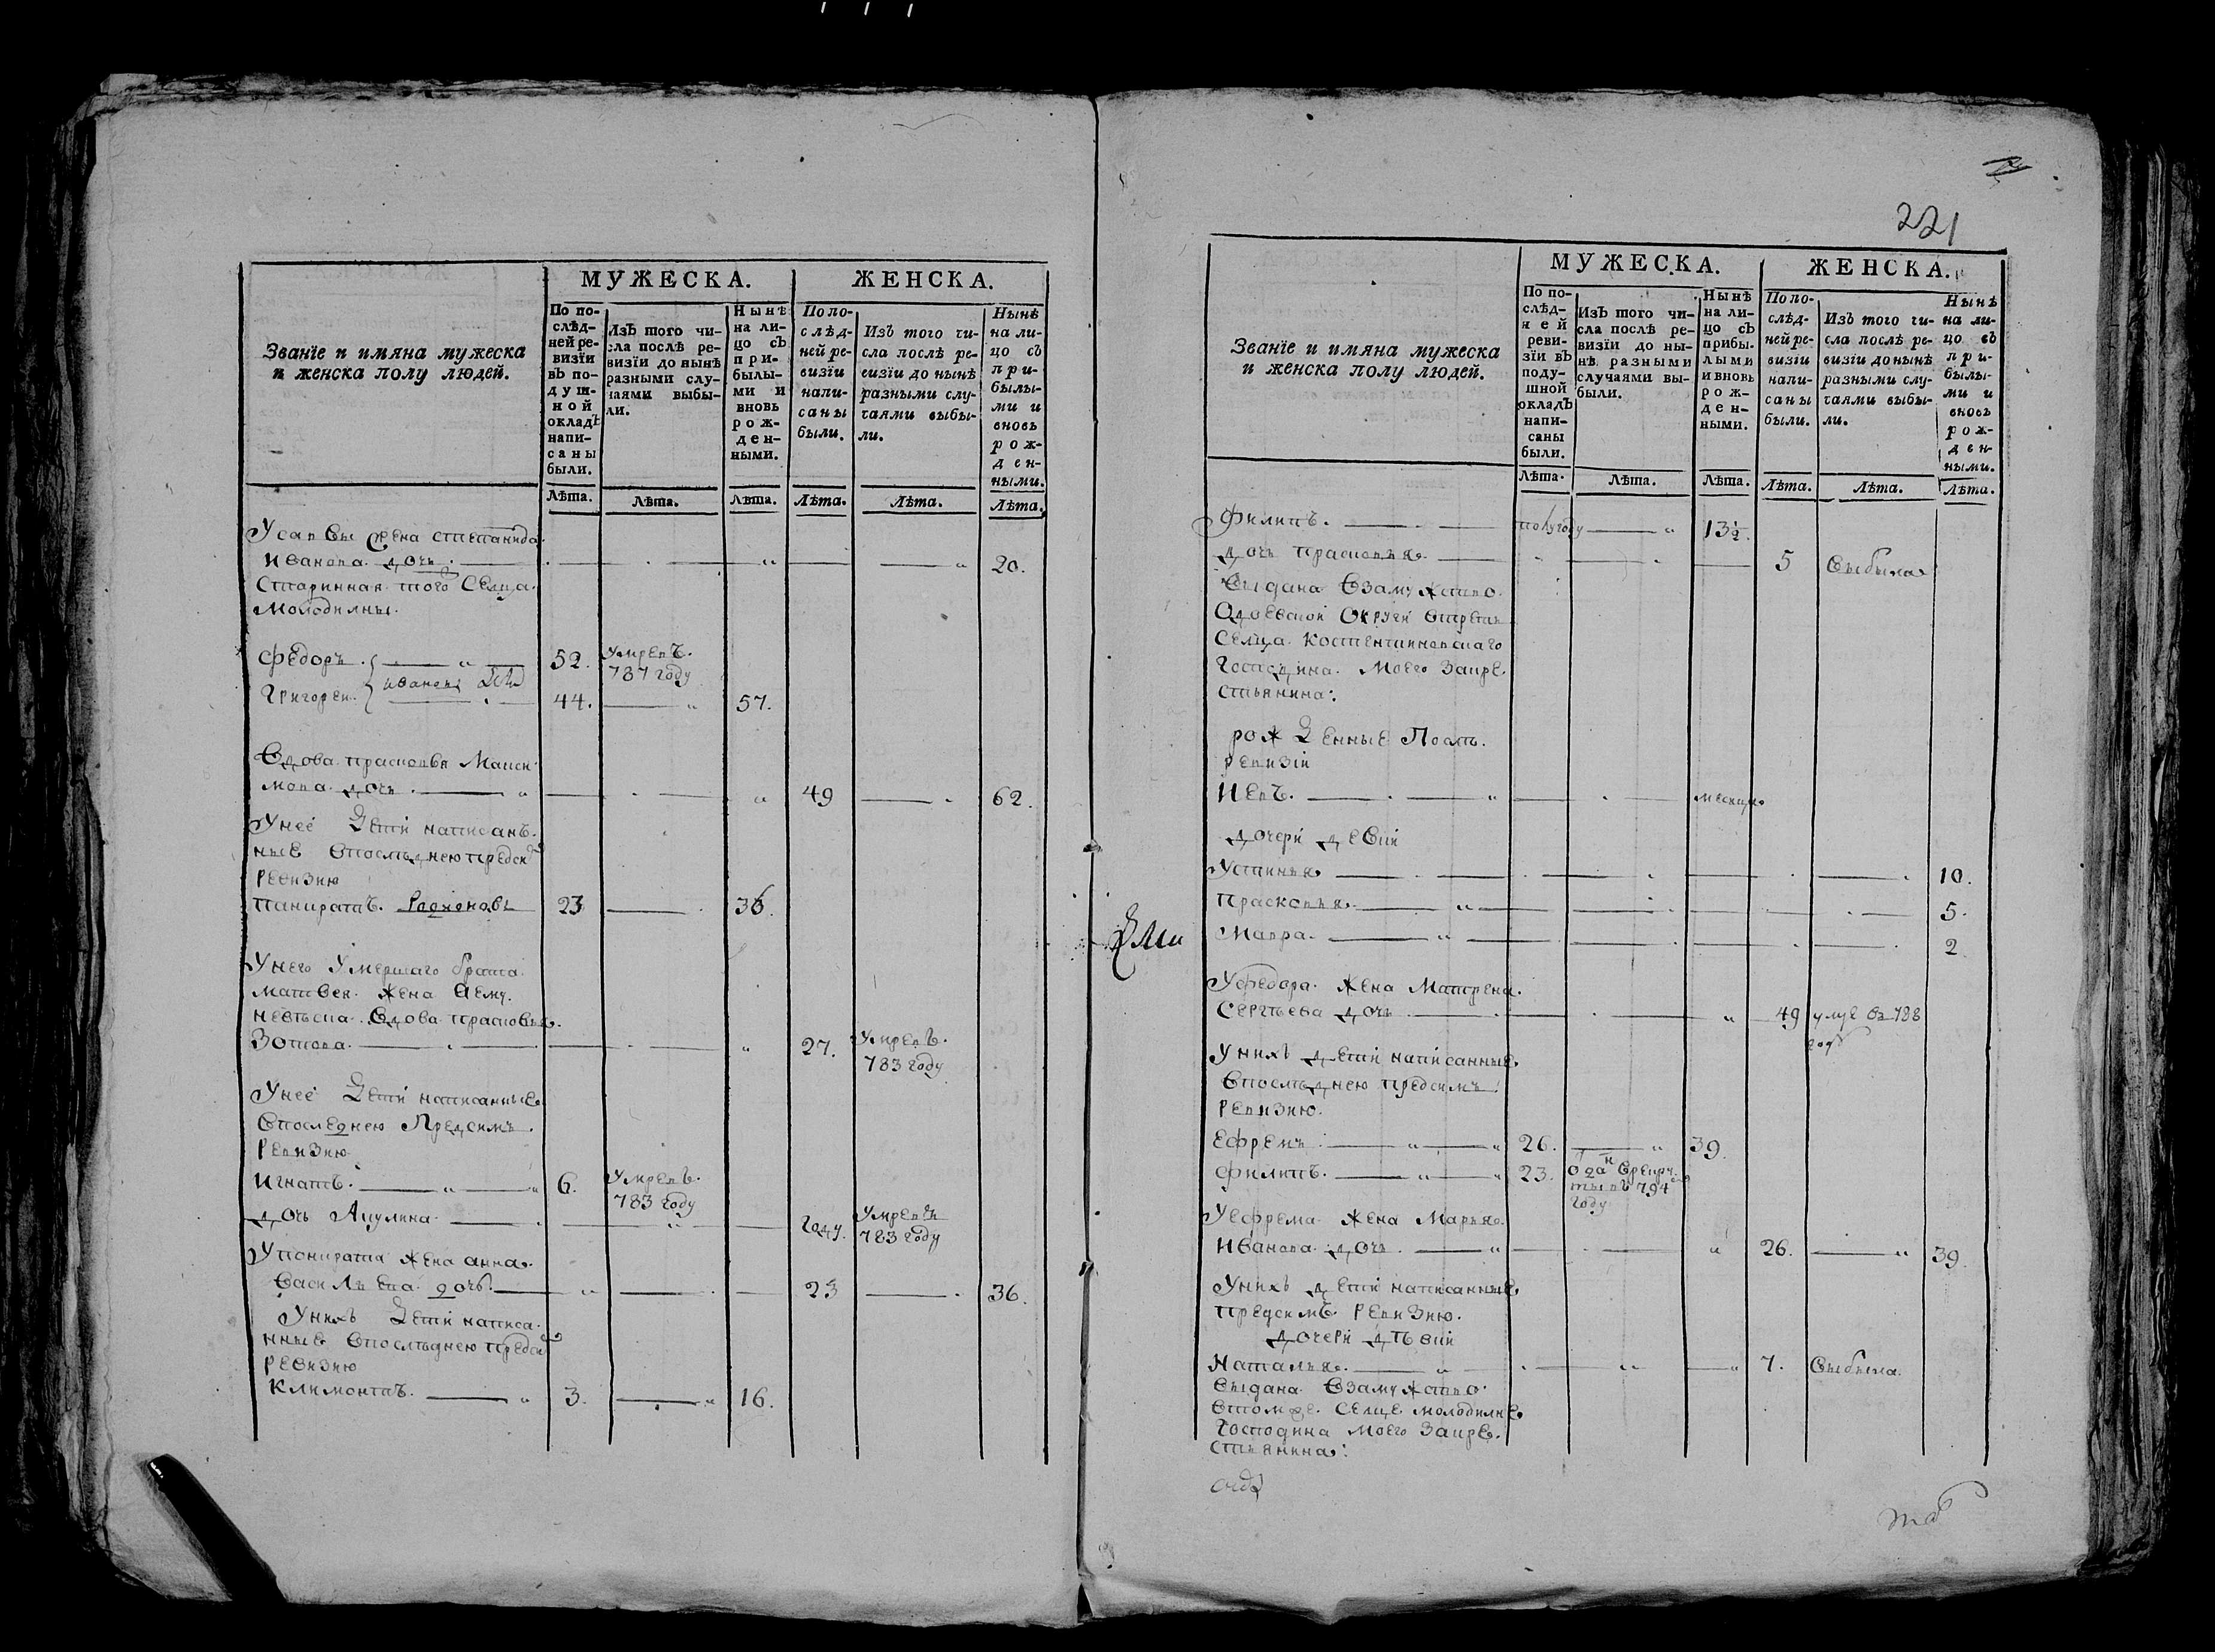 МУЖЕСКА. ЖЕНСКА.
Званїе и имяна мужеска
и женска полу людей.
По по-
слѣд-
ней ре-
визїи
въ по-
душ-
ной
окладъ
напи-
саны
были.
Изъ того чи-
сла послѣ ре-
визїи до нынѣ
разными слу-
чаями выбы-
ли.
Нынѣ
на ли-
цо съ
при-
былы-
ми и
вновь
рож-
ден-
ными.
По по-
слѣд-
ней ре-
визїи
напи-
саны
были.
Изъ того чи-
сла послѣ ре-
визїи до нынѣ
разными слу-
чаями выбы-
ли.
Нынѣ
на ли-
цо съ
при-
былы-
ми и
вновь
рож-
ден-
ными.
Лѣта. Лѣта. Лѣта. Лѣта. Лѣта. Лѣта.
жена степанида
иванова дочь 20.
старинная того селца
молодилны
федоръ 52. умрепъ.
787 году
ивановы дети
григореи 44. 57.
вдова прасковья макси
мова дочь 49 62.
унее дети написанъ
ные впослѣднею предси
ревизию
панкратъ Родионовъ 23 36.
унего умершаго брата
матвея жена аему
невѣска вдова прасковья
Зотова 27. умрепъ.
783 году
унее дети написанные
впоследнею предсимъ
ревизию
игнатъ 6. умрепъ.
783 году
дочь Акулина году. умрепъ
783 году
упонкрата жена анна
василъева дочь 23 36.
унихъ дети написа
нные впослѣднею предси
ревизию
климонтъ. 3. 16.
221
МУЖЕСКА. ЖЕНСКА.
Званїе и имяна мужеска
и женска полу людей.
По по-
слѣд-
ней
реви-
зїи въ
поду-
шной
окладъ
напи-
саны
были.
Изъ того чи-
сла послѣ ре-
визїи до ны-
нѣ разными
случаями вы-
были.
Нынѣ
на ли-
цо съ
прибы-
лыми
и вновь
рож-
ден-
ными.
По по-
слѣд-
ней ре-
визїи
напи-
саны
были.
Изъ того чи-
сла послѣ ре-
визїи до нынѣ
разными слу-
чаями выбы-
ли.
Нынѣ
на ли-
цо съ
при-
былы-
ми и
вновь
рож-
ден-
ными.
Лѣта. Лѣта. Лѣта. Лѣта. Лѣта. Лѣта.
филипъ. полугоду 13½
дочь прасковья 5 выбыла
выдана взамужство
Одоевской округи
селца костентиновскаго
господина моего закре
стьянина:
рожденные послѣ
ревизіи
иевъ. месяца
дочери девки
устинья 10.
прасковья 5.
мавра 2
уфедора жена матрена
сергѣева дочь 49 788
году
унихъ дети написанные
впослѣднею предсимъ
ревизию.
ефремъ 26. 39.
филипъ. 23. отданъ врекру
ты въ 794
году
уефрема жена марья
иванова дочь 26. 39.
унихъ дети написанные
предсимъ ревизию.
дочери дѣвки
наталья 7. выбыла
выдана взамужство
втомже селце молодилне
господина моего закре
стьянина: